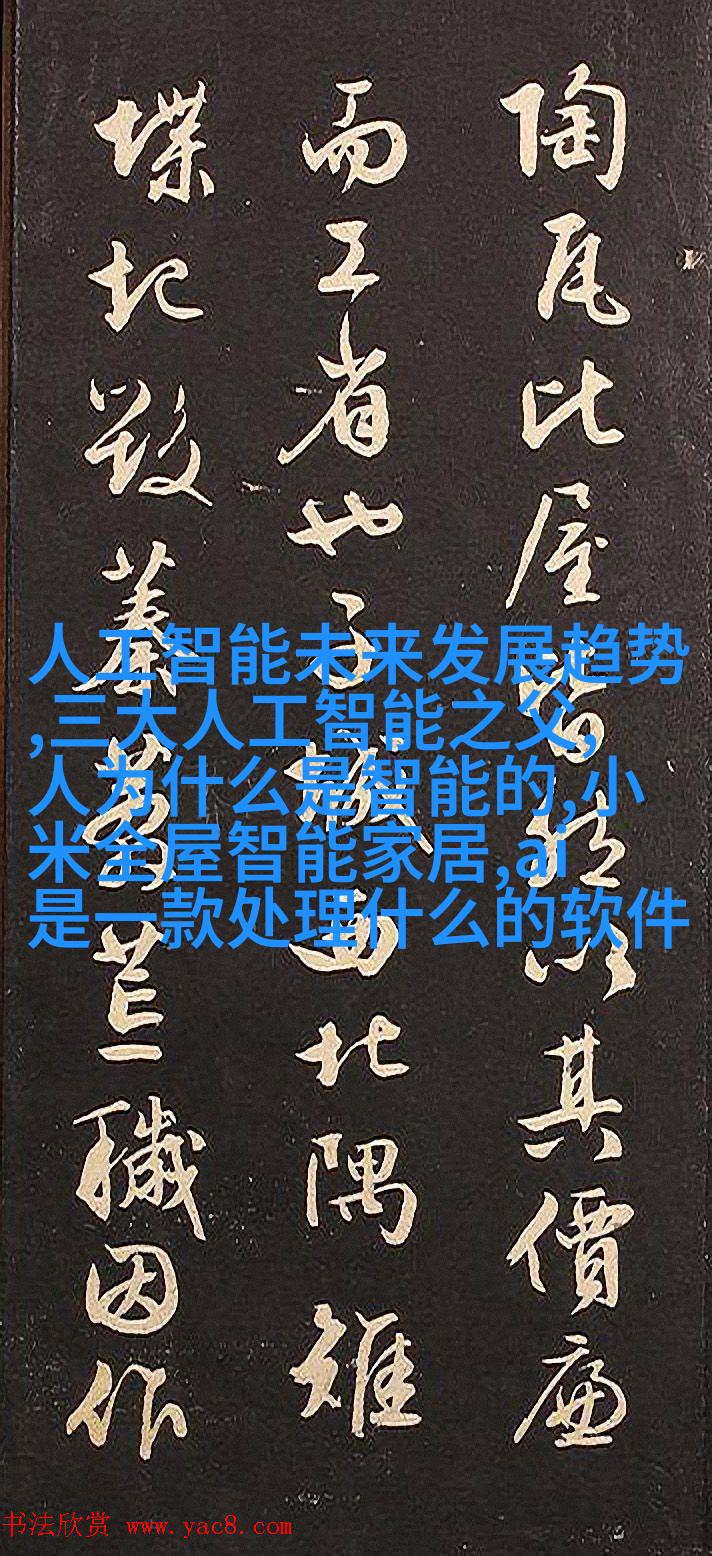 陶瓦比屋皆然以其價廉
而工省也子城西北隅雉
堞圮毀蓁莽荒穢因作
人工智能未来发展趋势
,三大人工智能之父,
人为什么是智能的,小
米全屋智能家居,ai
是一款处理什么的软件
书法欣赏 www.yac8.com